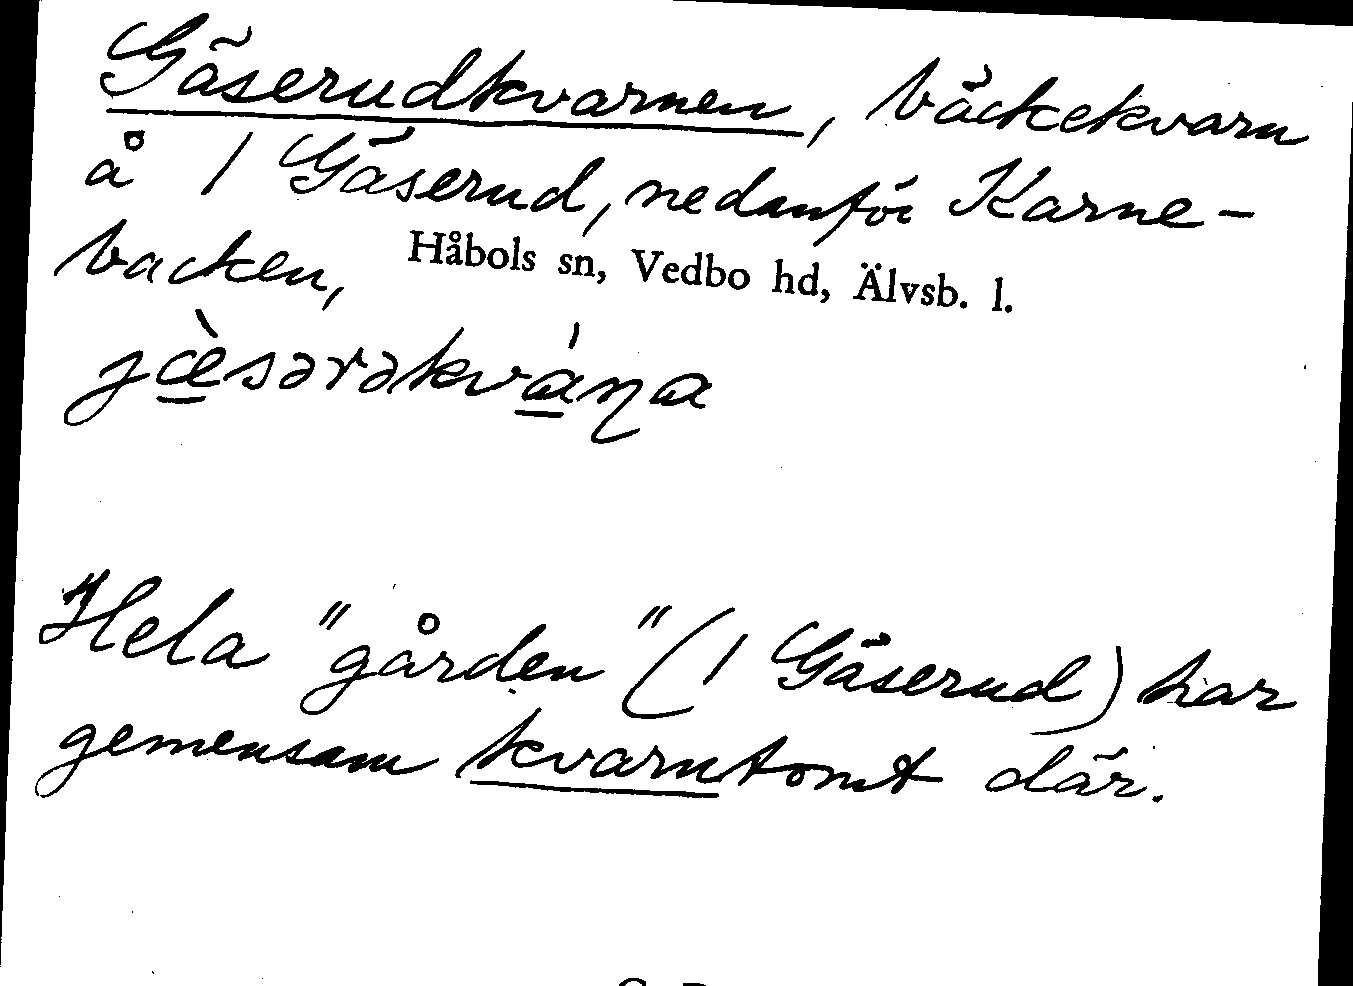 Gäserudkvarnen, bäckekvarn
å 1 Gäserud, nedanför Karne-
backen,
Håbols sn, Vedbo hd, Älvsb. l.
jæ̠̀sərəkvá̠ɳa
Hela "gården" (1 Gäserud) har
gemensam kvarntomt där.